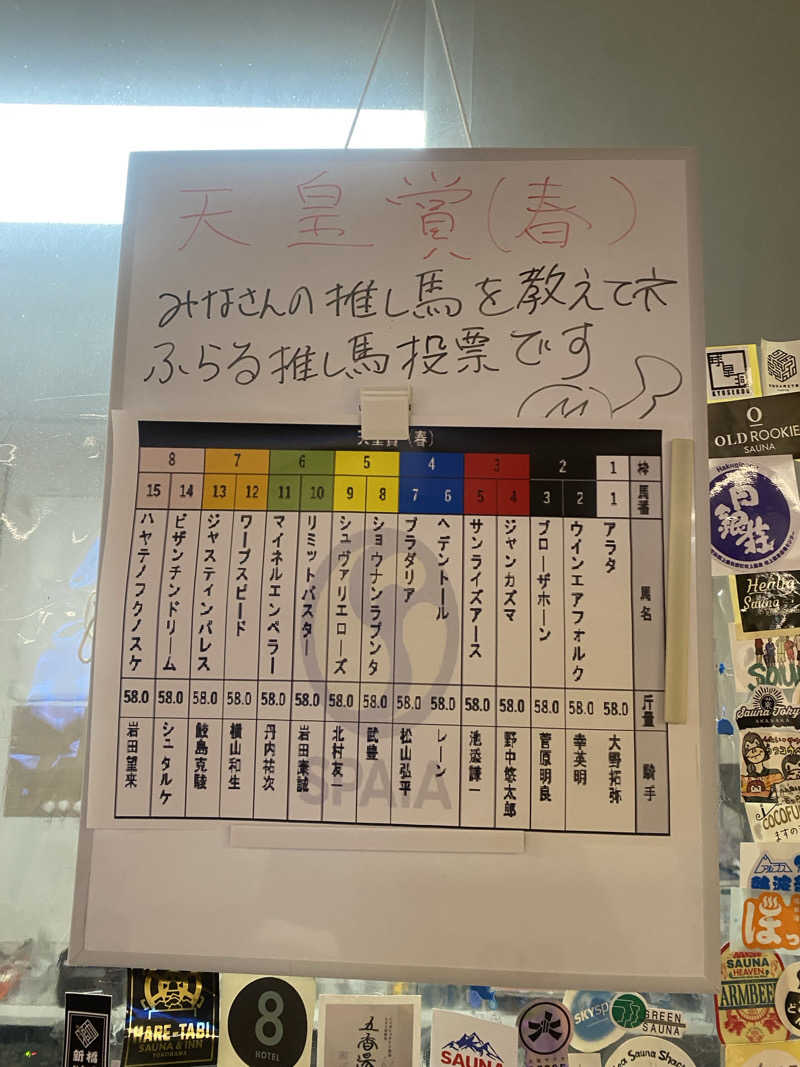 天皇賞(春)
みなさんの推し馬を教えてネ
ふらる推し馬投票です
天皇賞(春)
8 7 6 5 4 3 2 1 枠
15 14 13 12 11 10 9 8 7 6 5 4 3 2 1 馬番
馬名
アラタ
ウインエアフォルク
ブローザホーン
ジャンカズマ
サンライズアース
ヘデントール
プラダリア
ショウナンラプンタ
シュヴァリエローズ
リミットバスター
マイネルエンペラー
ワープスピード
ジャスティンパレス
ビザンチンドリーム
ハヤテノフクノスケ
58.0 58.0 58.0 58.0 58.0 58.0 58.0 58.0 58.0 58.0 58.0 58.0 58.0 58.0 58.0 斤量
騎手
大野拓弥
幸英明
菅原明良
野中悠太郎
池添謙一
レーン
松山弘平
武豊
北村友一
岩田康誠
丹内祐次
横山和生
鮫島克駿
シュタルケ
岩田望来
SPAIA
OLD ROOKIE
SAUNA
Hakuginso
白銀荘
Sauna
Sauna Tokyo
AKASAKA
SAUNA
HEAVEN
新橋
MARE-TABI
SAUNA & INN
YOKOHAMA
8
HOTEL
五香湯
SAUNA
GREEN
SAUNA